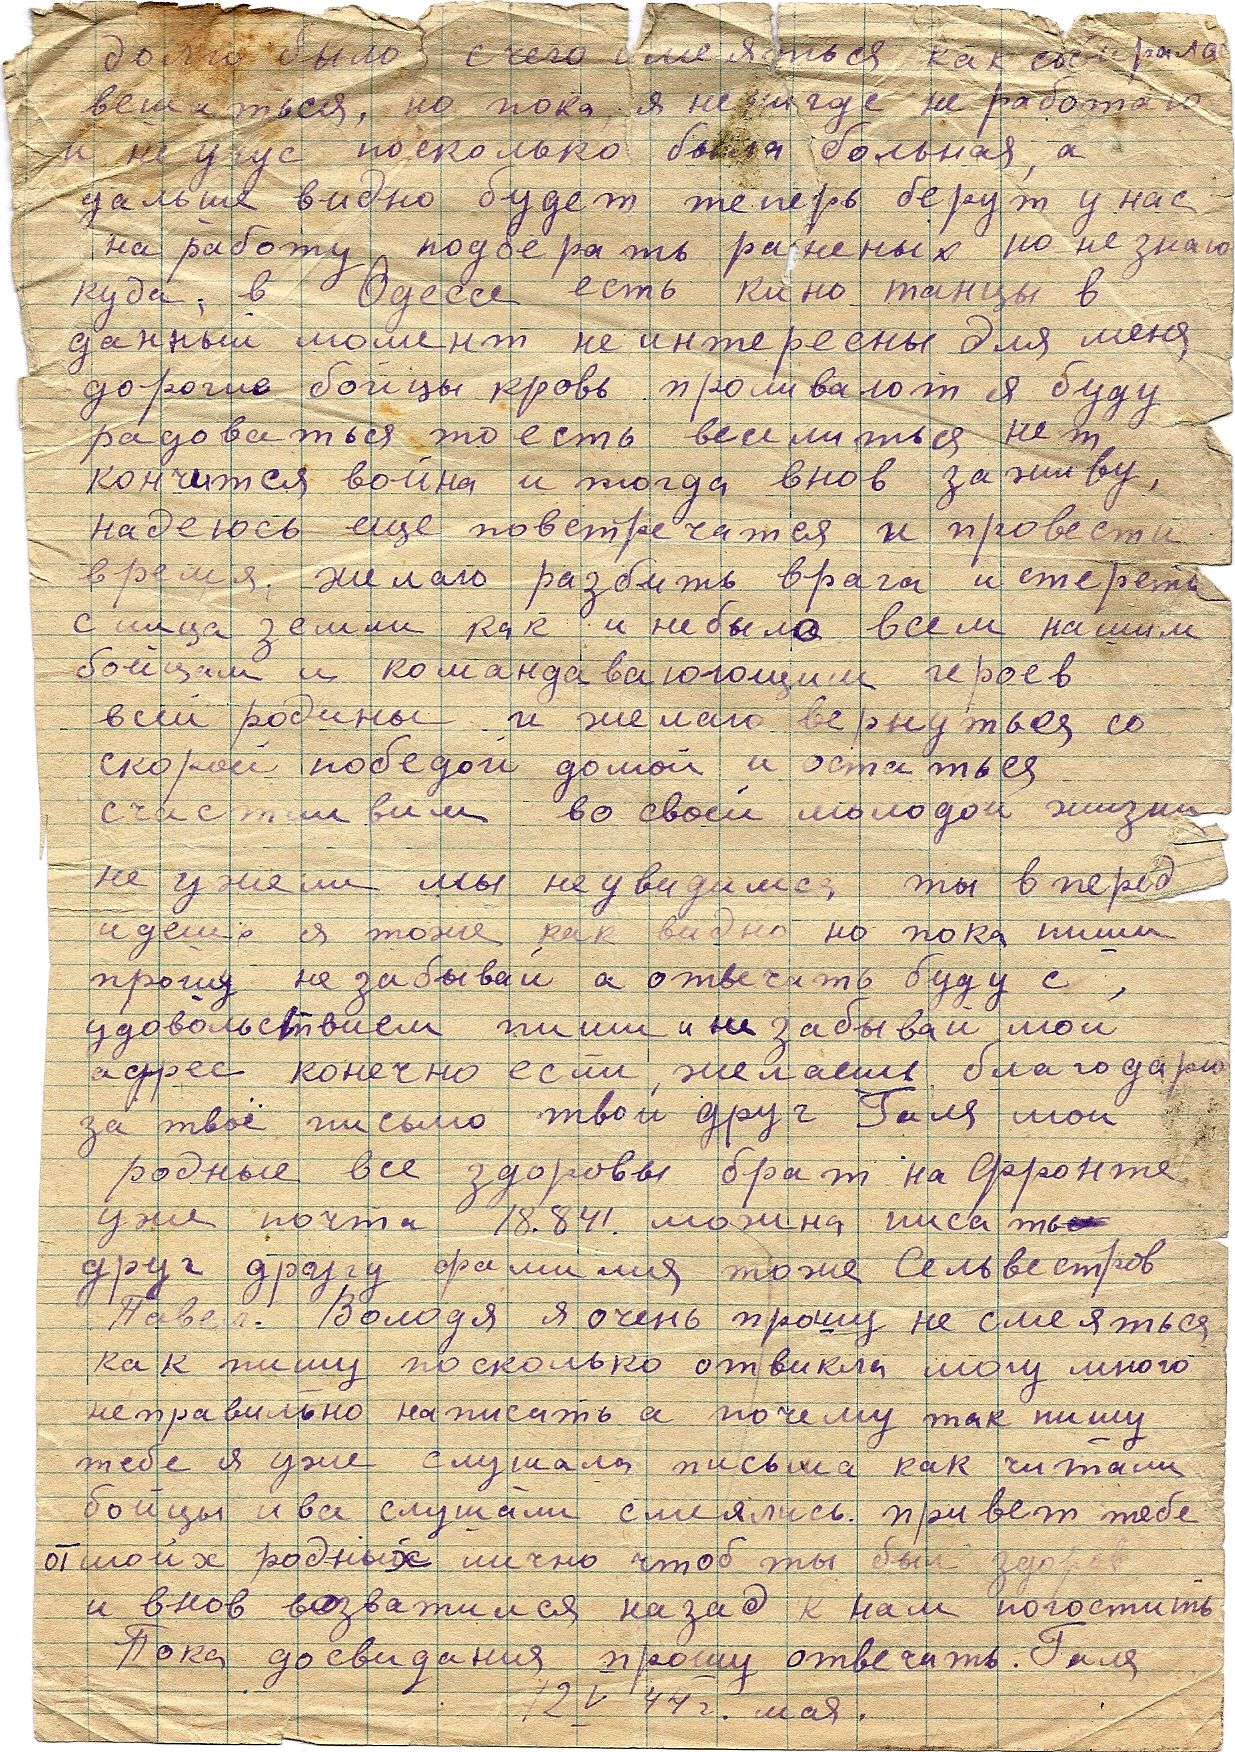 долго было с чего смеяться как собирала
вешаться, но пока, я не нигде не работаю
и не учус поскольку была больная, а
дальше видно будет теперь берут у нас
на работу подберать раненых но не знаю
куда, в Одессе есть кино танцы в
данный момент не интересны для меня
дорогие бойцы кровь проливают я буду
радоваться то есть веселиться нет,
кончится война и тогда внов заживу,
надеюсь еще повстречатся и провести
время, желаю разбить врага и стереть
с лица земли как и небыло всем нашим
бойцам и командаваюющим героев
всей родины и желаю вернуться со
скорой победой домой и остаться
счастливим во своей молодой жизни
не ужели мы неувидимся, ты вперед
идешь я тоже как видно но пока пиши
прошу незабывай а отвечить буду с,
удовольствием пиши и не забывай мой
адрес конечно если, желаешь благодарю
за твоё письмо твой друг Галя мои
родные все здоровы брат на фронте
уже почта 18.841. можна писать
друг другу фамилия тоже Сельвестров
Павел. Володя я очень прошу не смеяться
как пишу поскольку отвикла могу много
неправильно написать а почему так пишу
тебе я уже слушала письма как читали
бойцы и ва слушали смеялись. привет тебе
от моих родных лично чтоб ты был здоров
и внов возватился назад к нам погостить
Пока досвидания прошу отвечать. Галя
12 V 44 г. мая.